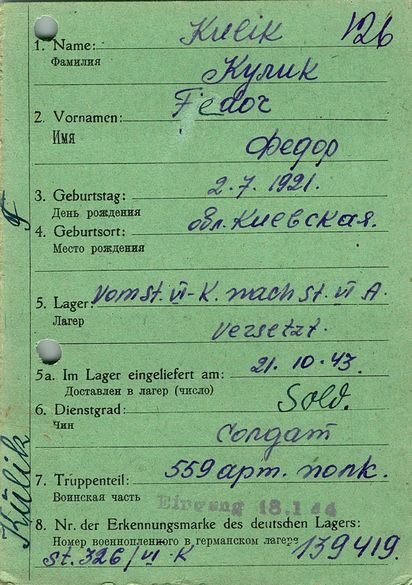 Kulik 126
1. Name:
Фамилия
Кулик
Fedor
2. Vornamen:
Имя
Федор
3. Geburtstag: 2.7.1921.
День рождения
4. Geburtsort: обл. Киевская.
Место рождения
5. Lager: Vom St. VI-K. nach St. VI A.
Лагерь
versetzt.
5a. Im Lager eingeliefert am: 21.10.43.
Доставлен в лагерь (число)
6. Dienstgrad: Sold.
Чин
Солдат
7. Truppenteil: 559 арт. полк.
Воинская часть
Eingang 18.1.44
8. Nr. der Erkennungsmarke des deutschen Lagers:
Номер военнопленного в германском лагере
139419.
St. 326/VI-K
Kulik F